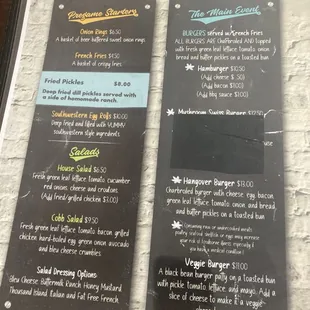 Pregame Starters
Onion Rings $6.50
A basket of beer battered sweet onion rings
French Fries $4.50
A basket of crispy fries
Fried Pickles $8.00
Deep fried dill pickles served with
a side of homemade ranch.
Southwestern Egg Rolls $10.00
Deep fried and filled with YUMMY
southwestern style ingredients
Salads
House Salad $6.50
Fresh green leaf lettuce, tomato, cucumber
red onions, cheese and croutons
(Add fried/grilled chicken $3.00)
Cobb Salad $9.50
Fresh green leaf lettuce, tomato, bacon, grilled
chicken, hard-boiled egg, green onion, avocado
and bleu cheese crumbles
Salad Dressing Options
Bleu Cheese, Buttermilk Ranch, Honey Mustard
Thousand Island, Italian and Fat Free French
The Main Event
BURGERS served w/French Fries
ALL BURGERS ARE Charbroiled AND topped
with fresh green leaf lettuce, tomato, onion
bread and butter pickles on a toasted bun
Hamburger $10.50
(Add cheese $.50)
(Add bacon $1.00)
(Add bbq sauce $1.00)
Mushroom Swiss Burger
Hangover Burger $13.00
Charbroiled burger with cheese, egg, bacon,
green leaf lettuce, tomato, onion and bread
and butter pickles on a toasted bun
Consuming raw or undercooked meats
poultry, seafood, shellfish or eggs may increase
your risk of foodborne illness, especially if
you have a medical condition
Veggie Burger $11.00
A black bean burger patty on a toasted bun
with pickle, tomato, lettuce, and mayo. Add a
slice of cheese to make it a veggie